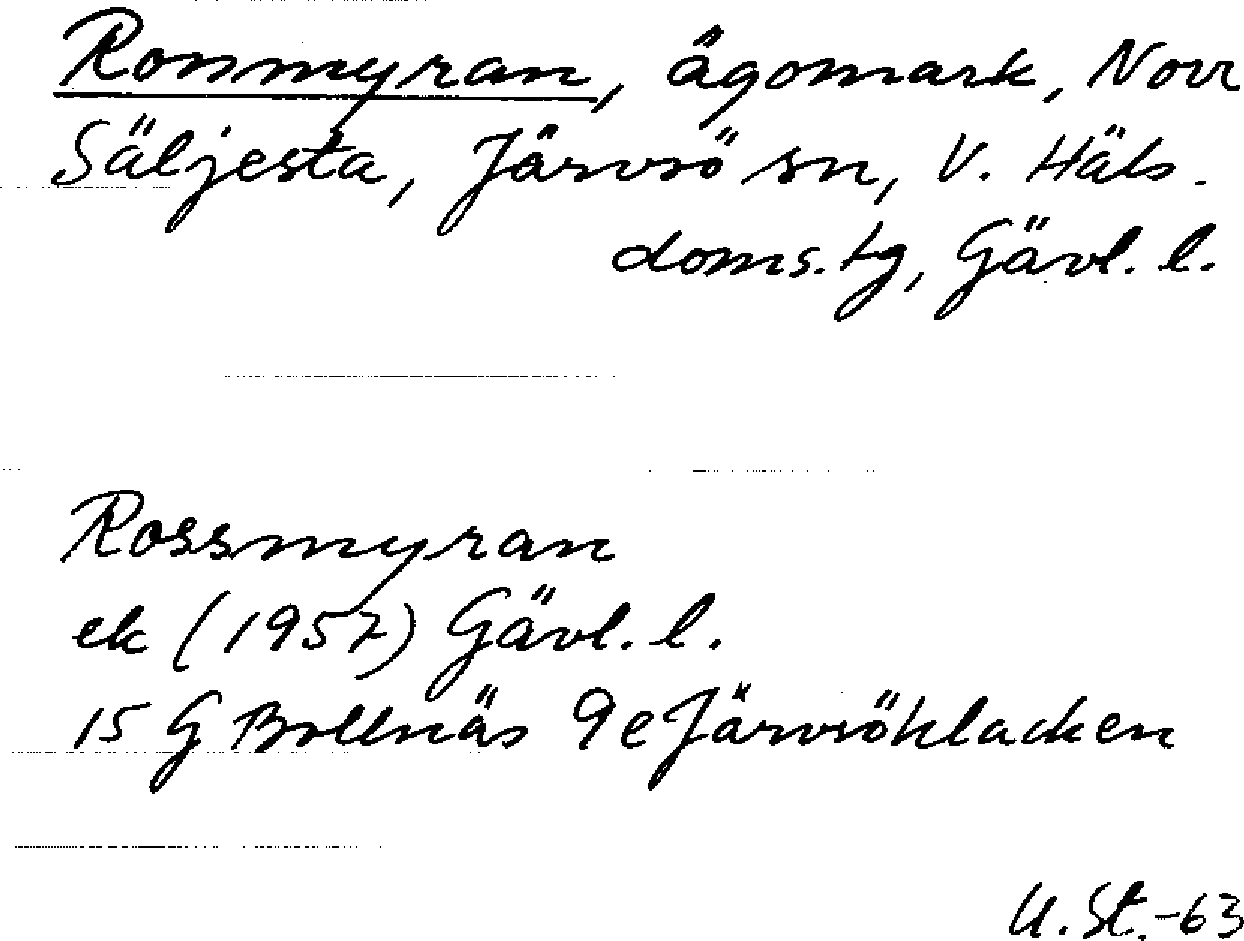 Ronmyran, ägomark, Norr
Säljesta, Järvsö sn, V. Häls.
doms.tg, Gävl. l.
Rossmyran
ek (1957) Gävl. l.
15 G Bollnäs 9e Järvsöklacken
U. St. -63